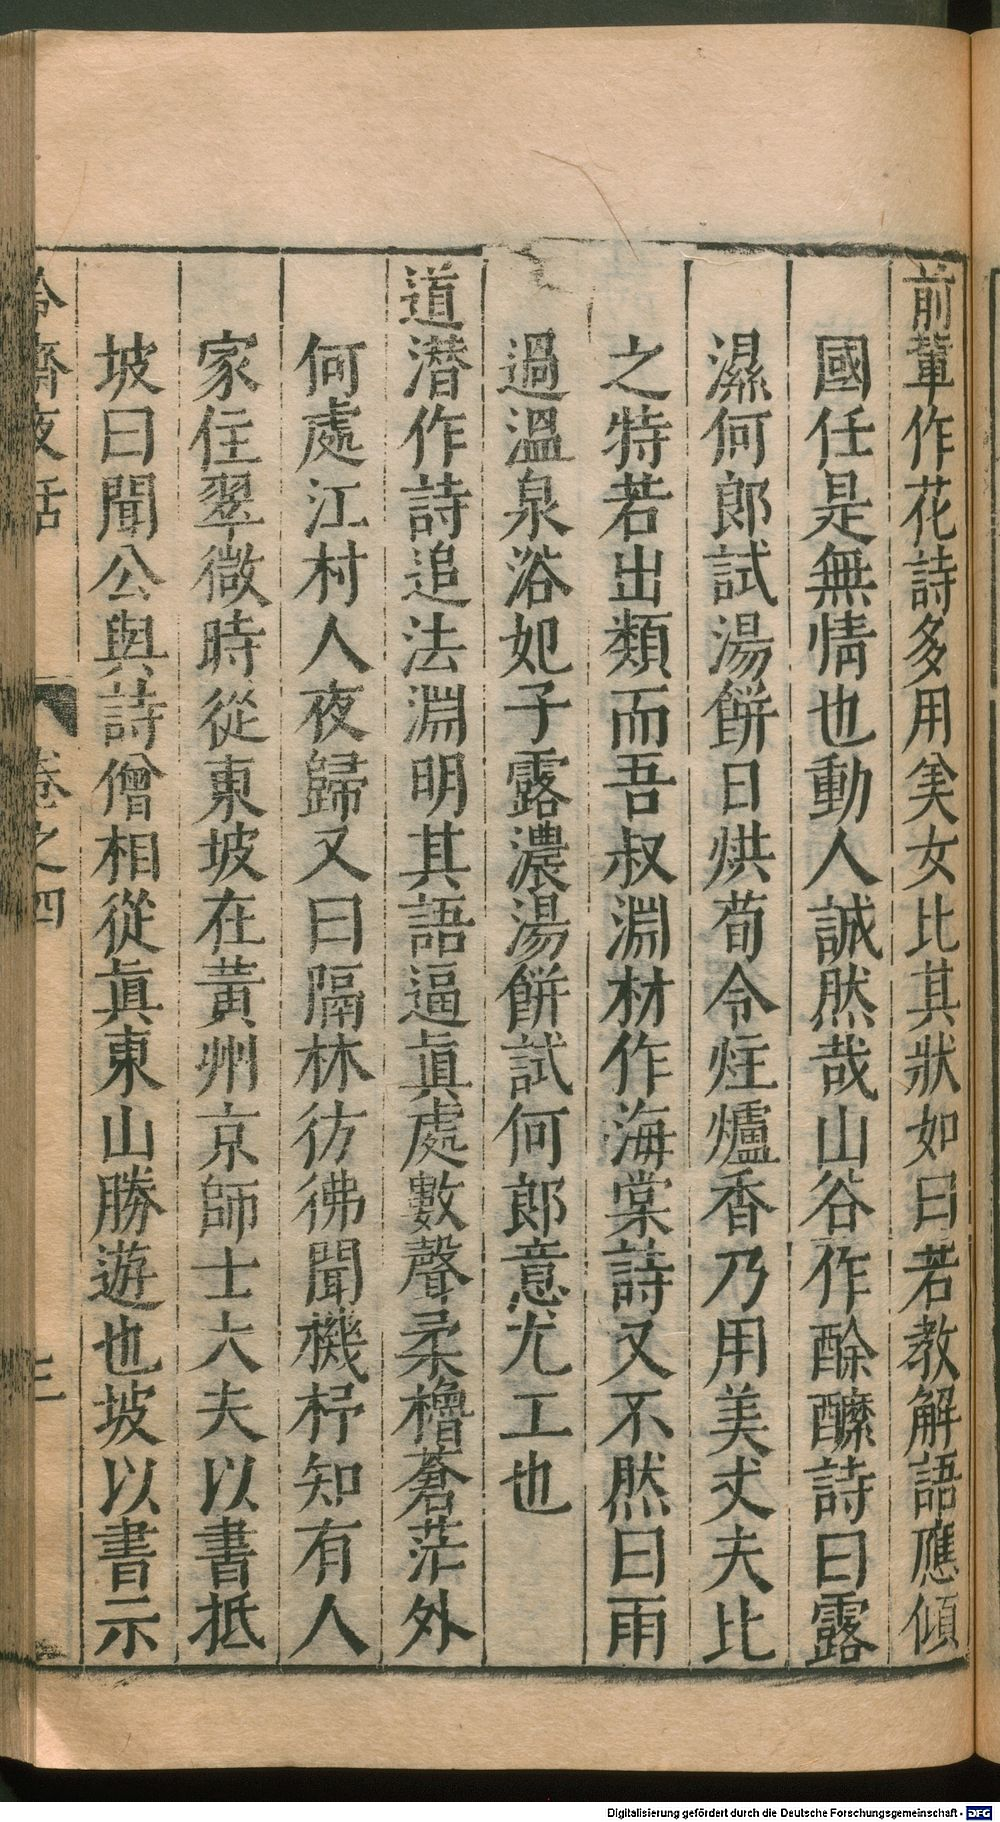 前軰作花詩多用美女比其狀如曰若教解語應傾
國任是無情也動人誠然哉山谷作酴醿詩曰露
濕何郎試湯餅日烘荀令炷爐香乃用美丈夫比
之特若出類而吾叔淵材作海棠詩又不然曰雨
過溫泉浴妃子露濃湯餅試何郎意尤工也
道潛作詩追法淵明其語逼眞處數聲柔櫓蒼茫外
何處江村人夜歸又曰隔林彷彿聞機杼知有人
家住翠微時從東坡在黃州京師士大夫以書抵
坡曰聞公與詩僧相從眞東山勝遊也坡以書示
冷齋夜話 卷之四 三
Digitalisierung gefördert durch die Deutsche Forschungsgemeinschaft - DFG